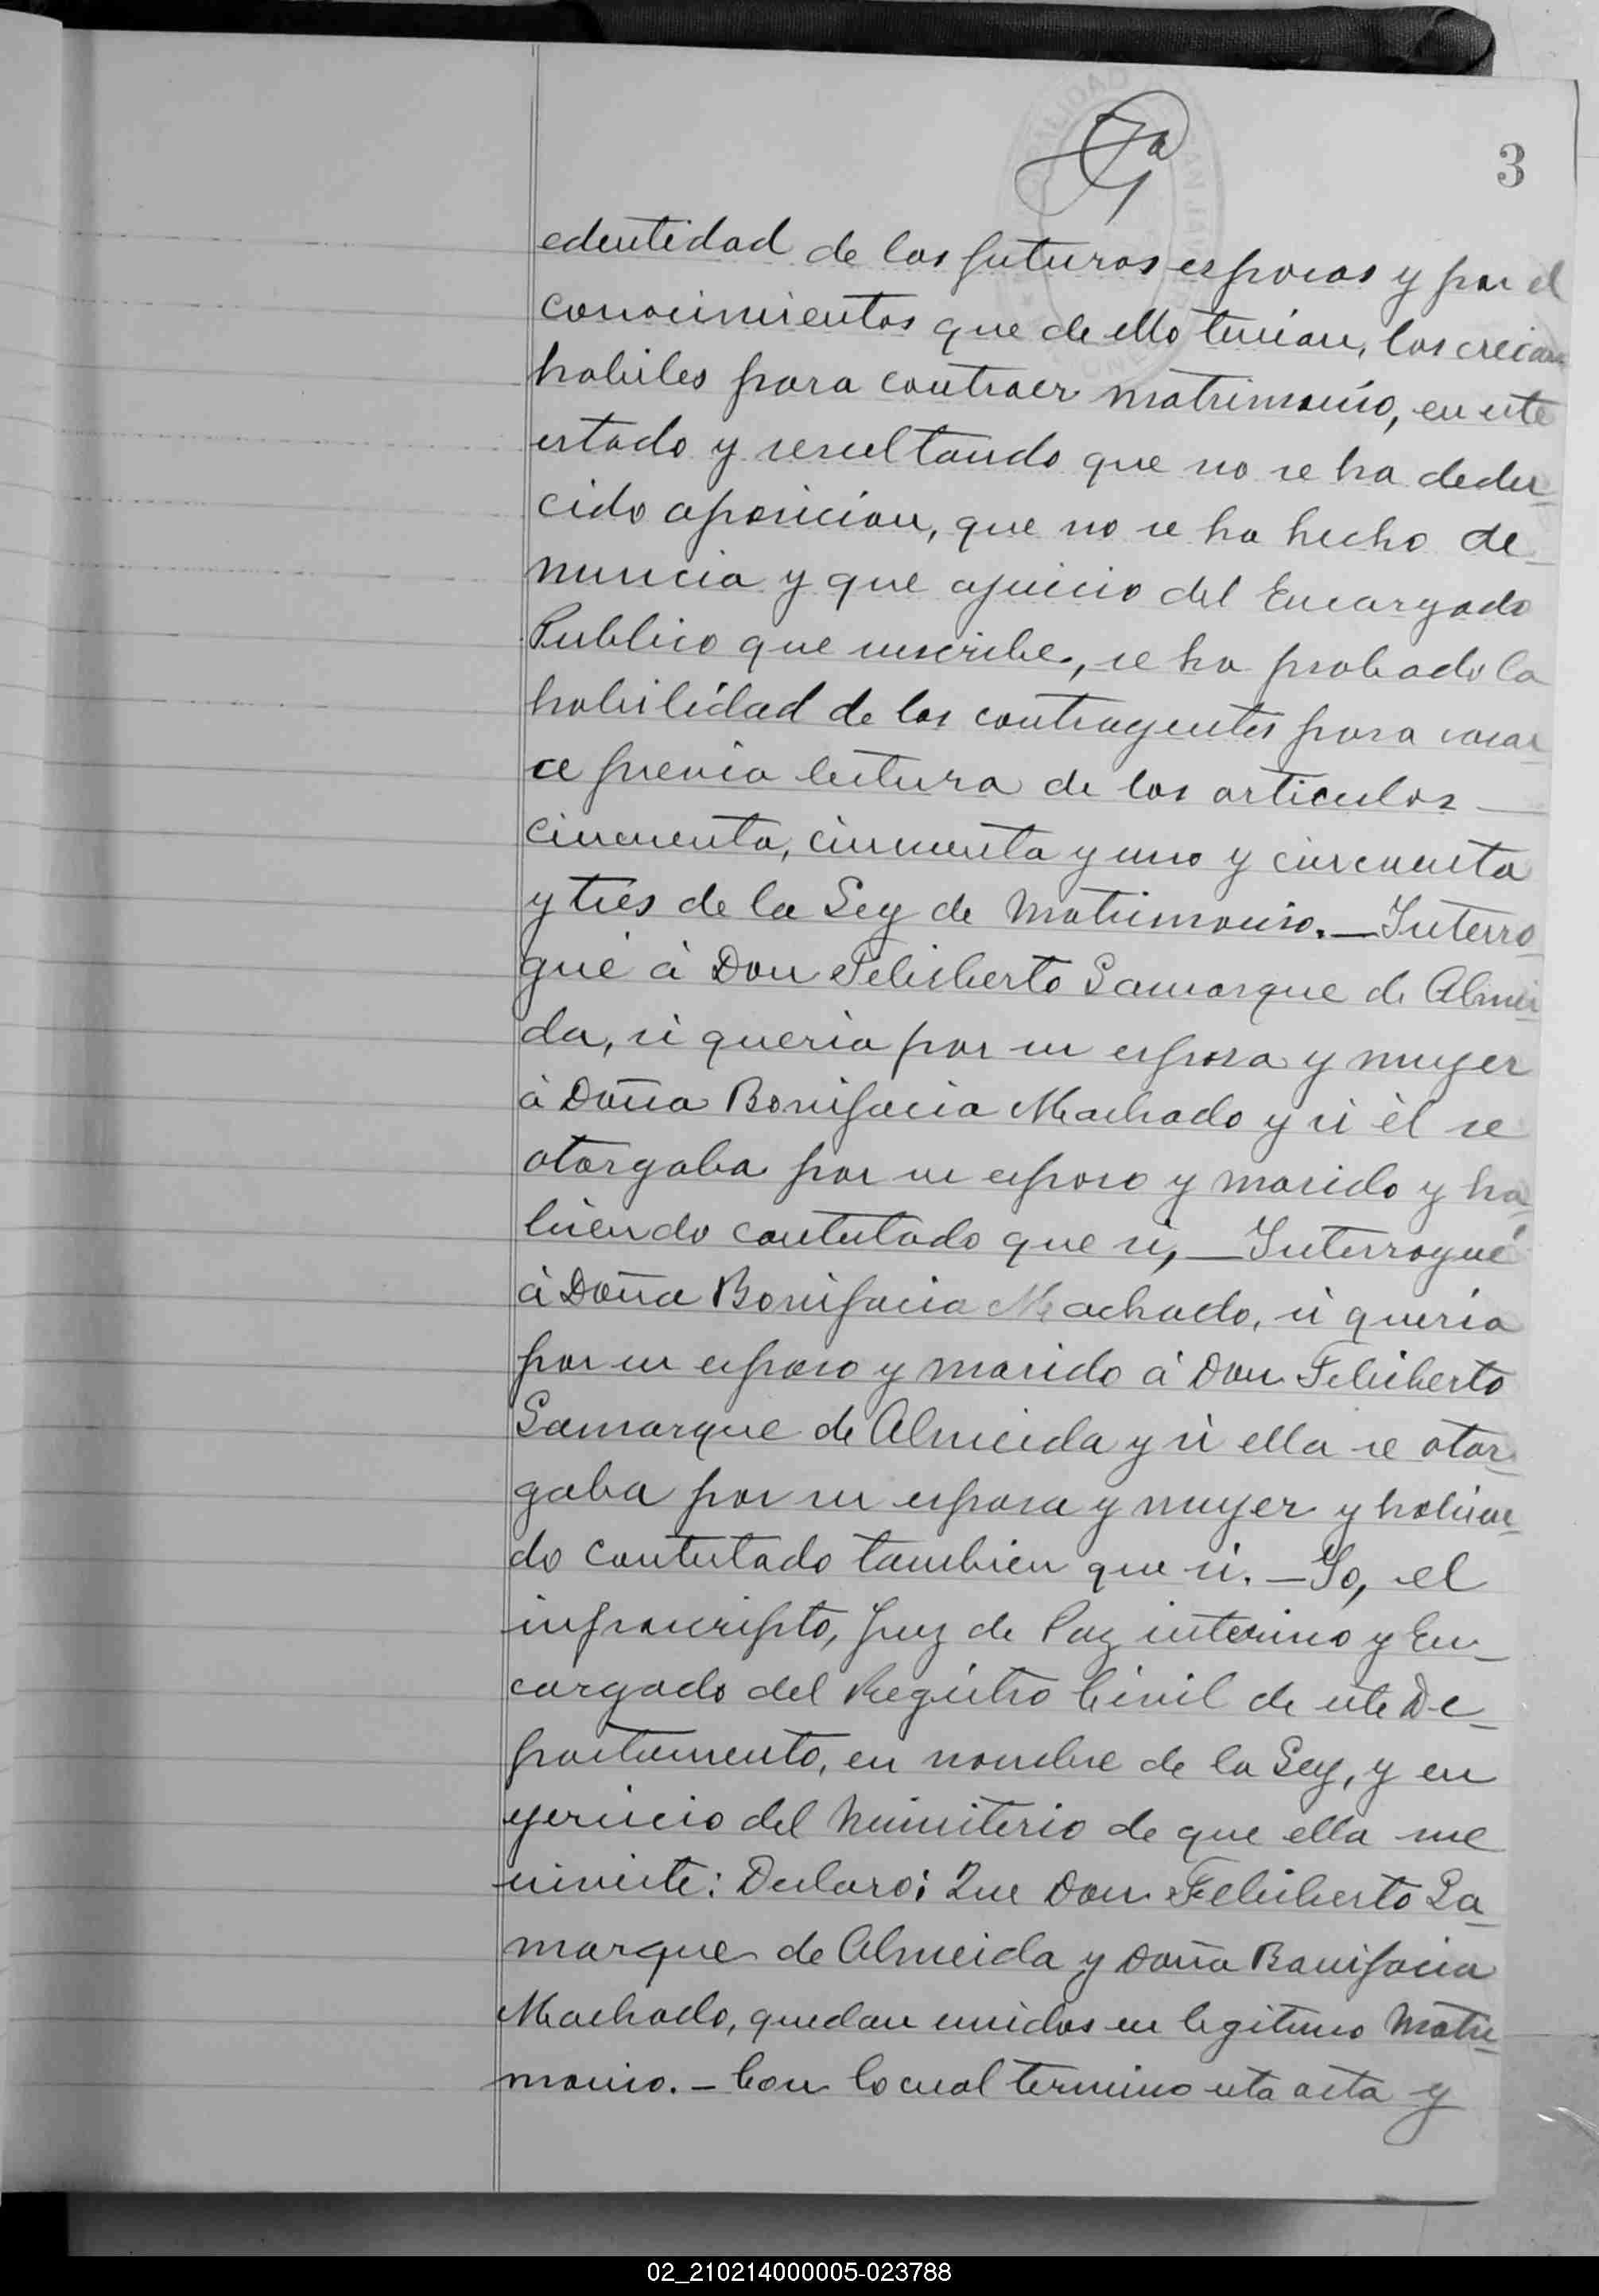 3
edentidad de los futuros esposos y por el
conocimientos que de ello tenian, los creian
habiles para contraer matrimonio, en este
estado y resultando que no se ha dedu-
cido oposicion, que no se ha hecho de-
nuncia y que ajuicio del Encargado
Publico que suscribe, se ha probado la
habilidad de los contragentes para casar-
ce previa lectura de los articulos —
cincuenta, cincuenta y uno y cincuenta
y tres de la Ley de Matrimonio. — Interro-
gué à Don Felisberto Lamarque de Almei-
da, si queria por su esposa y muger
à Doña Bonifacia Machado y si èl se
otorgaba por su esposo y marido y ha-
biendo contestado que si, — Interrogué
à Doña Bonifacia Machado, si queria
por su esposo y marido à Don Felisberto
Lamarque de Almeida y si ella se otor-
gaba por su esposa y muger y habien-
do contestado tambien que si. — Yo, el
infrascripto, Juez de Paz interino y En-
cargado del Registro Civil de este De-
partamento, en nombre de la Ley, y en
egercicio del Ministerio de que ella me
inviste: Declaro: Que Don Felisberto La-
marque de Almeida y Doña Bonifacia
Machado, quedan unidos en legitimo Matri-
monio. — Con lo cual termino esta acta y
02_210214000005-023788